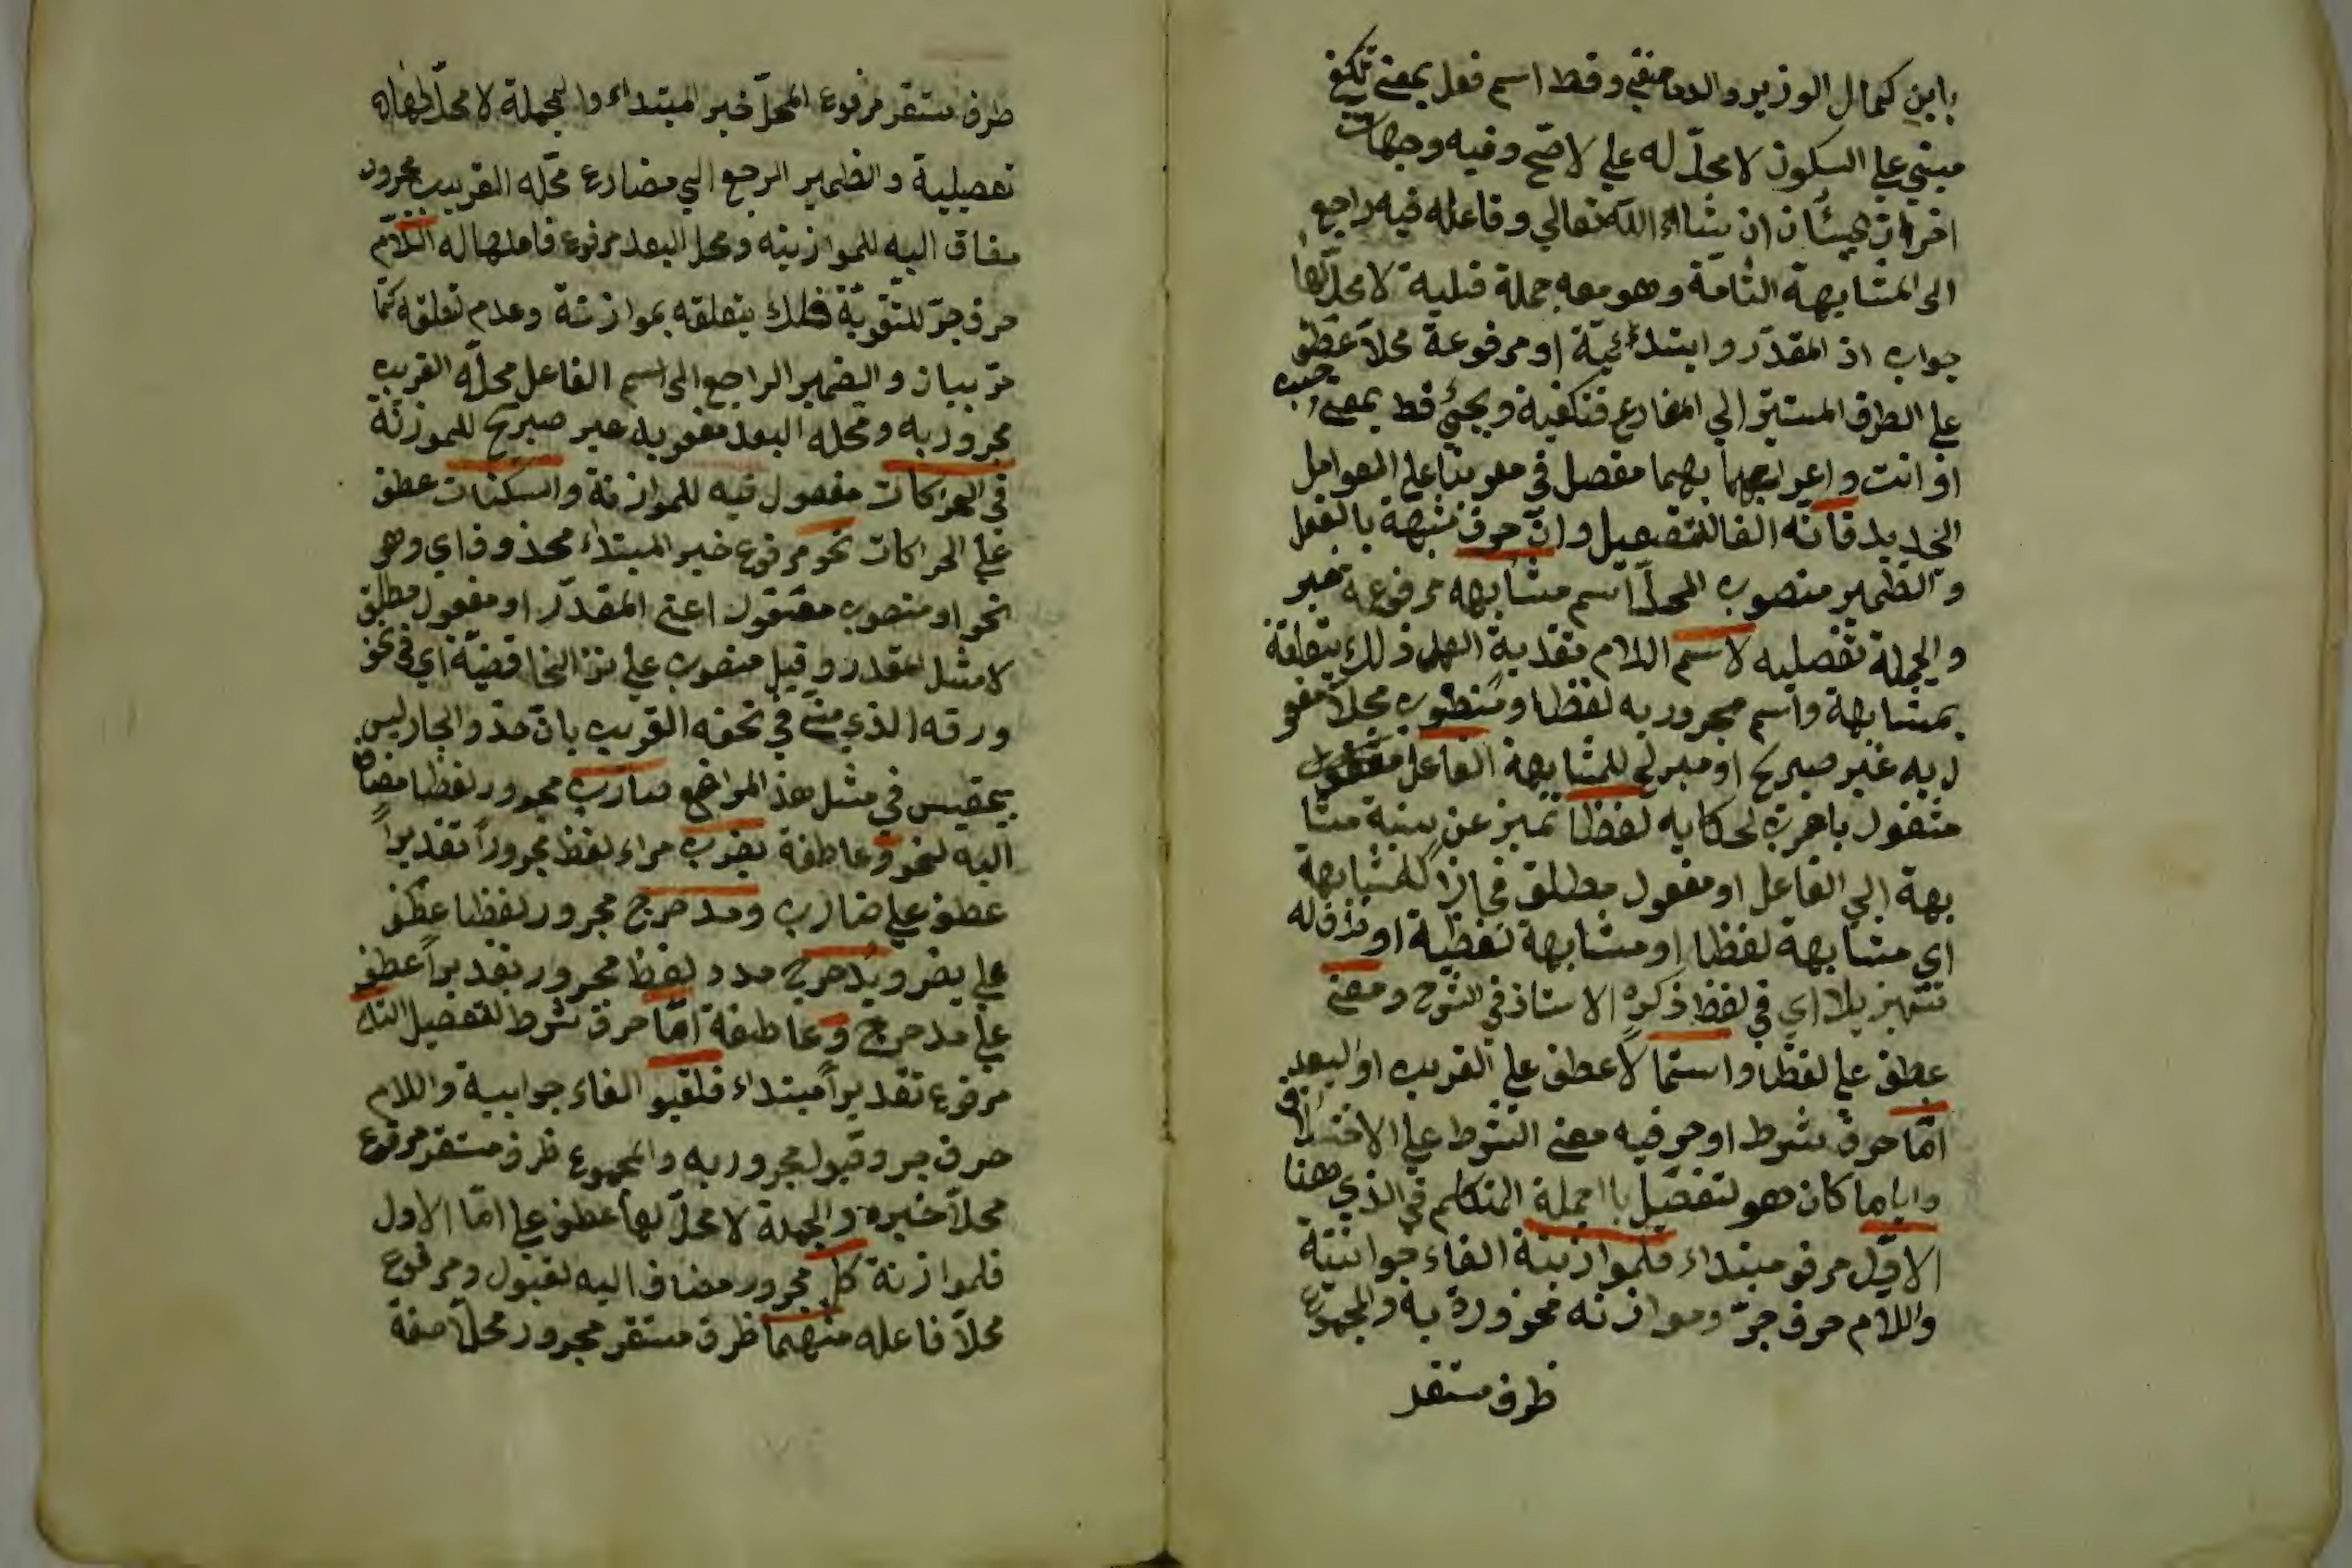 بابن كمال الوزير والدمامنقي وقط اسم فعل بمعنى تكفى
مبني على السكون لا محلّ له على لاصحّ وفيه وجهات
اخرات يجيئان ان يشاء الله تعالى وفاعله فيه راجع
الى المشابهة التامّة وهو معه جملة فعلية لا محلّ لها
جواب اذ المقدّر وابتدائيّة او مرفوعة محلّا عطف
على الظرف المستتر الي المضارع فتكفيه ويجئ قط بمعنى حسب
او انت واعرابهما بهما مفصل في معربنا على العوامل
الجديد فانّه الفا للتفصيل وانّ حرف مشبهة بالفعل
والظمير منصوب المحلّ اسم مشابهه مرفوعة خبر
والجملة تفصليه لاسم اللام تقدية العمل ذلك بتعلقة
بمشابهة واسم مجرور به لفظا ومنصوب محلّا مفعو
ل به غير صريح او مبر لي للمشابهة الفاعل مفعول
منقول باخرت لحكايه لفظا تميز عن نسبة مشا
بهة الي الفاعل او مفعول مطلق مجازا كالمشابهة
اي مشابهة لفظا او مشابهة لفظية او
بلا اي في لفظ ذكره الاستاذ في الشرح ومعنى
عطف على لفظا واستمالا عطف على القريب او البعيد
امّا حرف شرط او حرفيه معنى الشرط على الاختلاف
وايا ما كان فهو لتفصيل با اجملة المتكلم في الذي هنا
الاوّل مرفو مبتداء فلموازنة الفاء جوابيّة
واللام حرف جرّ وموازنه مجزورة به والمجموع
ظرف مستقر
ظرف مستقر مرفوع المحلّ خبر المبتداء والجملة لا محلّ لها
تفصيلية والظمير الرجع الي مضارع محّله القريب مجرور
مضاف اليه للموازنيته ومحل البعد مرفوع فاعلها له اللام
حرف جرّ للتقويّة فلك بتعلقه بموازنة وعدم تعلقه كمّا
مرّ بيان والضمير الراجع الى اسم الفاعل محلّه القريب
مجرور به ومحله البعد مفعو به غير صريح للموزنة
في الحركات مفعول فيه للموازنة والسكنات عطف
على الحراكات نحو مرفوع خبر المبتداء محذوف اي وهي
نحو او منصوب مفعول اعنى المقدّر او مفعول مطلق
لامثل المقدر وقيل منصوب على نزا الخافضيّة اي في نحو
ورقه الذي منّي في تحفه القريب بانّ حذو الجار ليس
بمقيس في مثل هذ المواضع ضارب مجرور لفظا مضاف
اليه لنحو وعاطفة يضرب مراء لفظ مجروراً تقديراً
عطف على ضارب ومدحرج مجرور لفظا عطف
على يضر ويدحرج مدد لفظ مجرور تقديراً عطف
على مدحرج وعاطفة امّا حرف شرط للتفصيل الثا
مرفوع تقديراً مبتداء فلقبو الفاء جوابية واللام
حرف جر وقبول مجرور به والمجموع ظرف مستقر مرفوع
محلّا خبره والجملة لا محلّ لها عطف على امّا الاول
فلموازنة كل مجرور مضاف اليه لقبول ومرفوع
محلّا فاعله منهما ظرف مستقر مجرور محلّا صفة